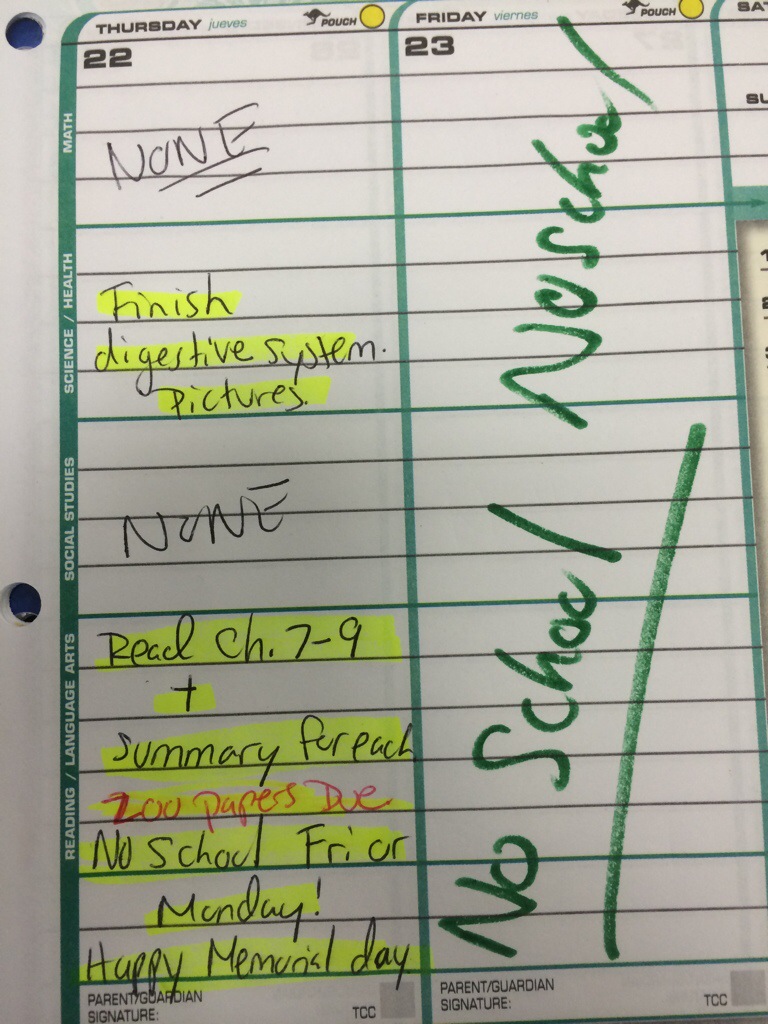 THURSDAY jueves POUCH
22
MATH
NONE
SCIENCE / HEALTH
Finish
digestive system.
Pictures.
SOCIAL STUDIES
NONE
READING / LANGUAGE ARTS
Read Ch. 7-9
+
Summary for each
Zoo papers Due
No School Fri or
Monday!
Happy Memorial day
PARENT/GUARDIAN
SIGNATURE: TCC
FRIDAY viernes POUCH
23
No School
No School
PARENT/GUARDIAN
SIGNATURE: TCC
SAT
SU
1
2